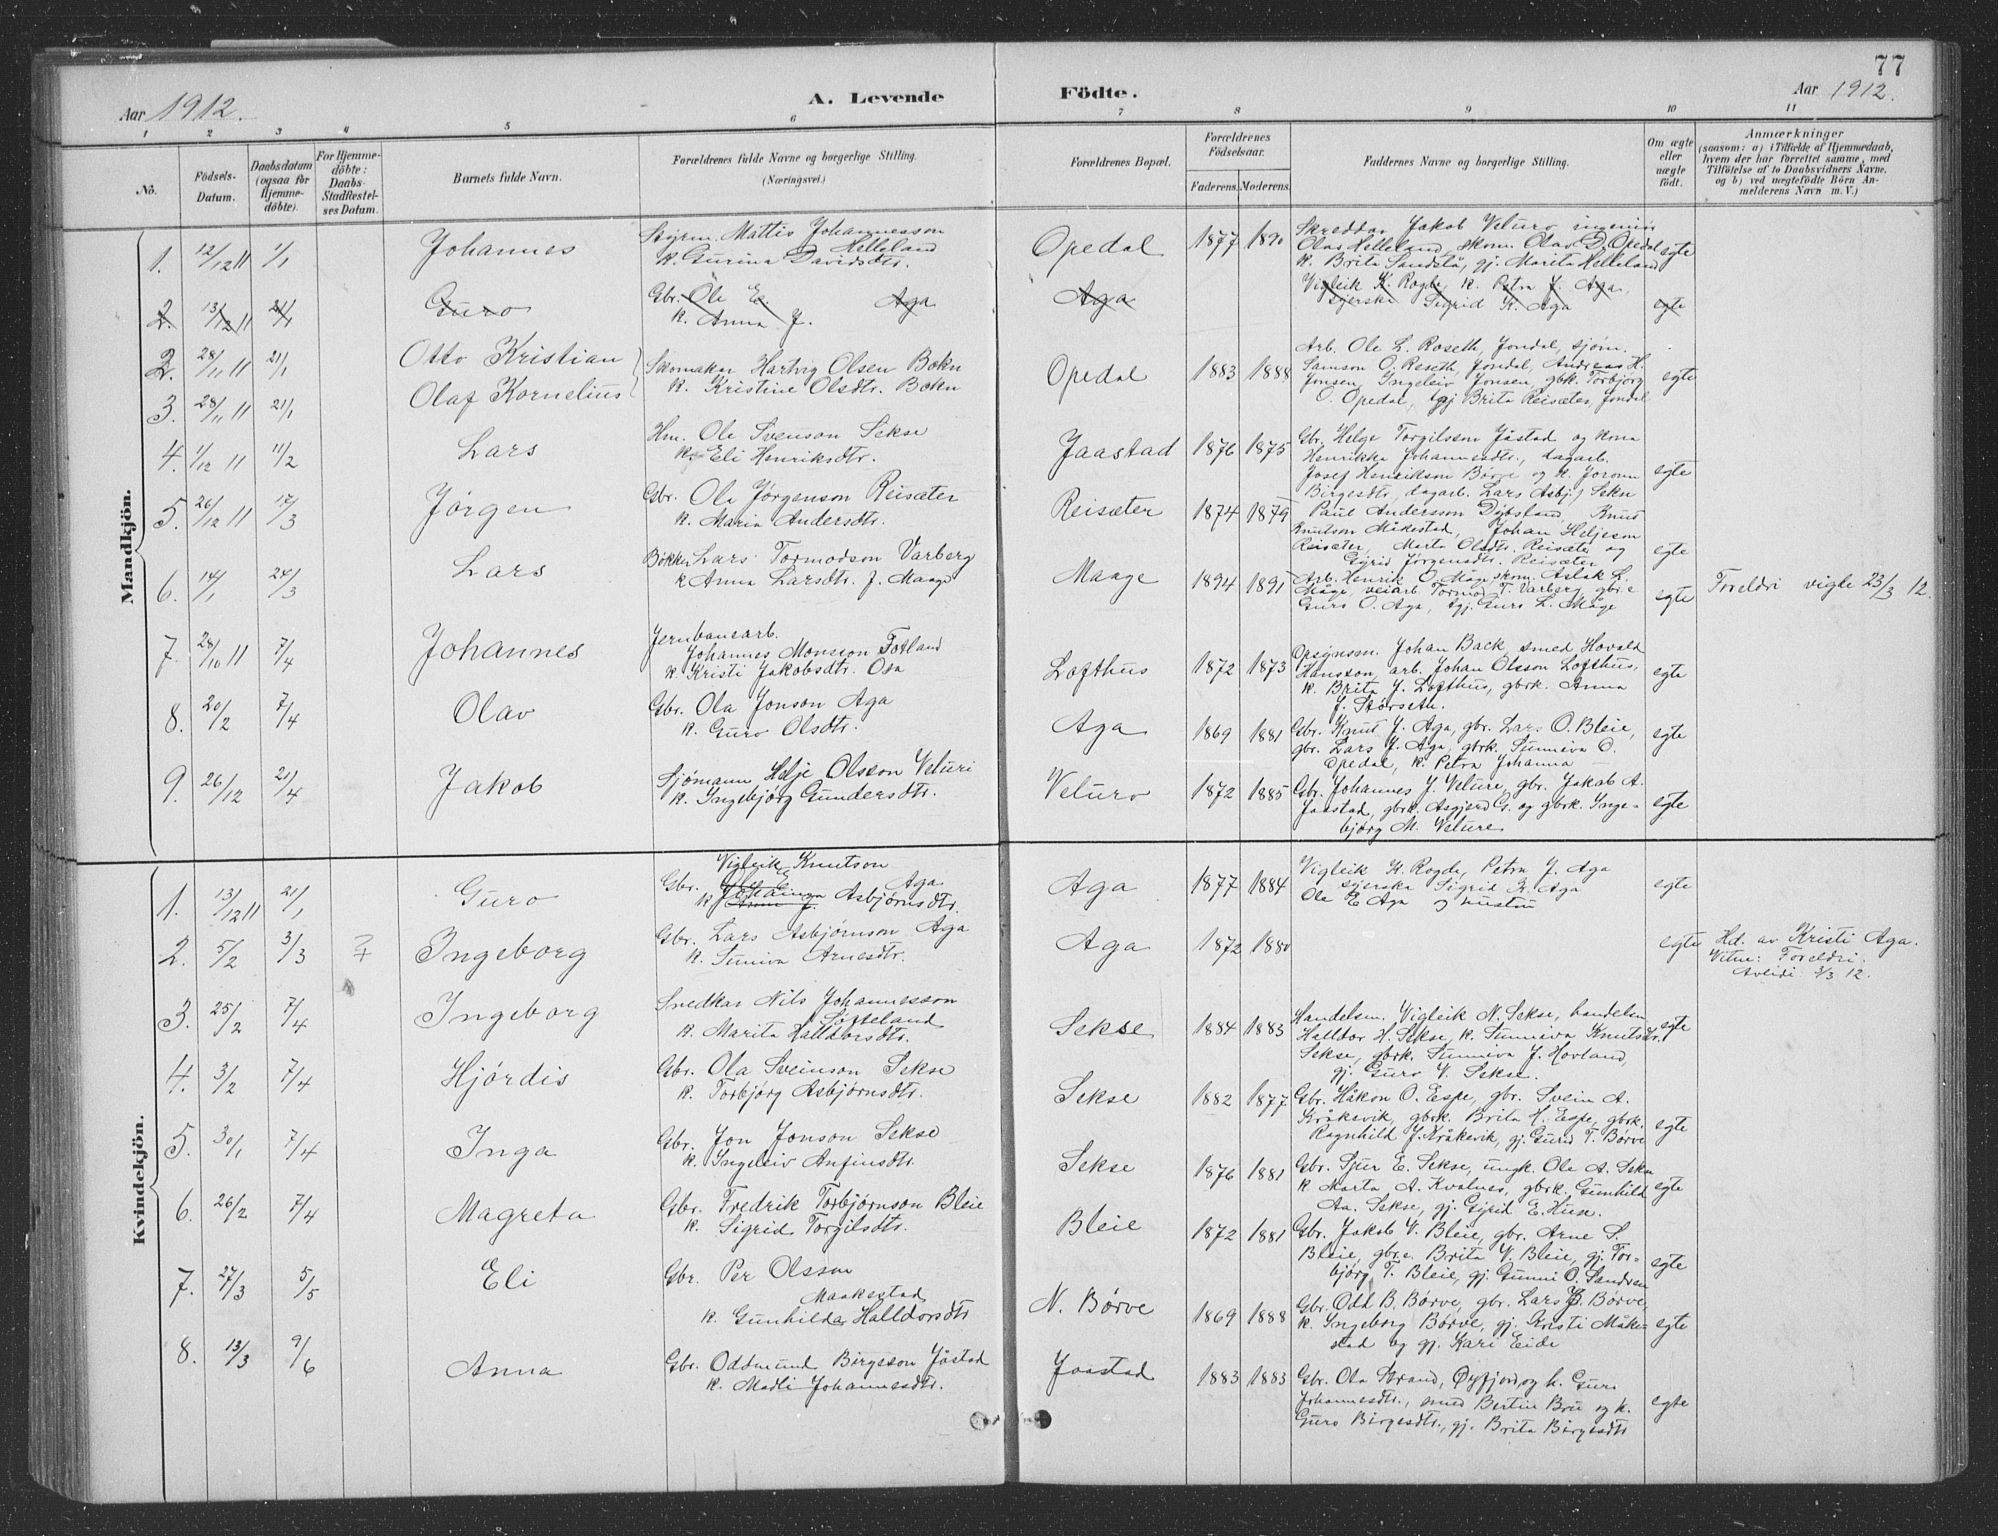 77
Aar 1912.
A. Levende Födte.
Aar 1912.
1 2 3 4 5 6 7 8 9 10 11
No.
Födsels-Datum.
Daabsdatum (ogsaa for Hjemme-döbte).
For Hjemme-döbte: Daabs-Stadfæstel-ses Datum.
Barnets fulde Navn.
Forældrenes fulde Navne og borgerlige Stilling. (Næringsvei.)
Forældrenes Bopæl.
Forældrenes Fødselsaar.
Faderens. Moderens.
Faddernes Navne og borgerlige Stilling.
Om ægte eller uægte födt.
Anmærkninger
(saasom: a) i Tilfælde af Hjemmedaab, hvem der har forrettet samme, med Tilföielse af to Daabsvidners Navne, og b) ved uægtefödte Börn An-melderens Navn m. V.)
Mandkjön.
1. 12/12 11 1/1 Johannes
Styrm. Mattis Johannesson Helleland
k. Gurina Davidsdtr.
Opedal 1877 1890
Skreddar Jakob Veluro ingeniör
Olav Helleland, skom. Olav D. Opedal
k. Brita Sandstö, gj. Marita Helleland
egte
2. 13/12 11 21/1 Guro
Gbr. Ole E. Aga
k. Anna J.
Aga
Vigleik K. Rogde, k. Petra J. Aga,
syerske Sigrid K. Aga
egte
2. 28/11 11 21/1 Otto Kristian
3. 28/11 11 21/1 Olaf Kornelius
Skomakar Hartvig Olsen Bokn
k. Kristine Olsdtr. Bokn
Opedal 1883 1888
Arb. Ole L. Roseth, Jondal, sjöm.
Samson O. Reseth, Jondal, Andreas H.
Jonsen, Ingeleiv Jonsen, gbk. Torbjörg
O. Opedal, gj Brita Reisæter, Jondal
egte
4. 1/12 11 11/2 Lars
Hm. Ole Svenson Sekse
k. Eli Henriksdtr.
Jaastad 1876 1875
Gbr. Helge Torgilssen Jåstad og kona
Henrikke Johannesdtr., dagarb.
Josef Henrikson Börve og k Joronn
Birgesdtr, dagarb. Lars Asbj. Sekse
egte
5. 26/12 11 17/3 Jørgen
Gbr. Ola Jørgenson Reisæter
k. Maria Andersdtr.
Reisæter 1874 1879
Paul Andersson Djösland, Knut
Knutson Måkestad, Johan Heljeson
Reisæter, Marta Olsdtr. Reisæter og
Gyrid Jørgensdtr. Reisæter
egte
6. 14/1 24/3 Lars
Bøkker Lars Tormodson Varberg
k Anna Larsdtr. f. Maage
Maage 1894 1891
Arb. Henrik O. Måge, skom. Aslak L.
Måge, veiarb. Tormod T. Varberg gbr.e
Guro O. Aga, gj. Guro L. Måge
egte
Foreldri vigle 23/3 12.
7. 28/10 11 7/4 Johannes
Jernbanearb.
Johannes Monsson Fotland
k Kristi Jakobsdtr. Osa
Lofthus 1872 1873
Opsynsm. Johan Back, smed Hovald
Hansson, arb. Johan Olsson Lofthus,
k. Brita J. Lofthus, gbrk. Anna
J. Störseth.
egte
8. 20/2 7/4 Olav
Gbr. Ola Jonson Aga
k. Guro Olsdtr.
Aga 1869 1881
Gbr. Knut J. Aga, gbr. Lars O. Bleie,
gbr. Lars J. Aga, gbrk. Sunniva O.
Opedal, k. Petra Johanna —
egte
9. 26/12 21/4 Jakob
Sjömann Helje Olsson Veluri
k. Ingebjörg Gundersdtr.
Veluro 1872 1885
Gbr. Johannes J. Velure, gbr. Jakob A.
Jaastad, gbrk. Asgjerd G. og gbrk. Inge-
björg M. Velure
egte
Kvindekjön.
1. 13/12 11 21/1 Guro
Vigleik Knutson
Gbr. Ole E. Aga
k. Johanna Anna J. Asbjørnsdtr.
Aga 1877 1884
Vigleik K. Rogde, Petra J. Aga
syerska Sigrid K. Aga
Ole E Aga og hustru
egte
2. 5/2 3/3 Ingeborg
Gbr. Lars Asbjørnson Aga
k. Suniva Arnesdtr.
Aga 1872 1880
egte
Hd. av Kristi Aga.
Vitne: Foreldri.
Avlidi 5/3 12.
3. 25/2 7/4 Ingeborg
Snedkar Nils Johannesson
k. Marita Halldorsdtr.
Sekse 1884 1883
Handelsm. Vigleik N. Sekse, handelsm
Halldor H. Sekse, k. Sunniva Knutsdtr.
Sekse, gbrk. Sunniva J. Hovland,
gj. Guro V. Sekse.
egte
4. 3/2 7/4 Hjördis
Gbr. Ola Sveinson Sekse
k. Torbjörg Asbjörnsdtr.
Sekse 1882 1877
Gbr. Håkon O. Espe, gbr. Svein A.
Kråkevik, gbrk. Brita H. Espe, gbrk.
Ragnhild J. Kråkevik, gj. Gurid T. Börve
egte
5. 30/1 7/4 Inga
Gbr. Jon Jonson Sekse
k. Ingeleiv Anfinsdtr.
Sekse 1876 1881
Gbr. Sjur E. Sekse, ungk. Ole A. Sekse
k Marta A. Kvalnes, gbrk. Gunhild
Aa. Sekse, gj. Gyrid E. Huse.
egte
6. 26/2 7/4 Magreta
Gbr. Fredrik Torbjørnson Bleie
k. Sigrid Torgilsdtr.
Bleie 1872 1881
Gbr. Jakob V. Bleie, gbr. Arne S.
Bleie, gbr.e Brita V. Bleie, gj. Tor-
björg T. Bleie, gj. Gunni O. Sandven
egte
7. 27/3 5/5 Eli
Gbr. Per Olsson
Maakestad
k. Gunhilda Halldorsdtr
N. Børve 1869 1888
Gbr. Odd B. Börve, gbr. Lars B. Börve,
k. Ingeborg Börve, gj. Kristi Måke-
stad og gj. Kari Eide
egte
8. 13/3 9/6 Anna
Gbr. Oddmund Birgsson Jåstad
k. Madli Johannesdtr.
Jaastad 1883 1883
Gbr. Ola Strand, Øyfjord, og k. Guro
Johannesdtr., smed Bertin Bru og k.
Guro Birgesdtr., gj. Brita Birgesdtr
egte